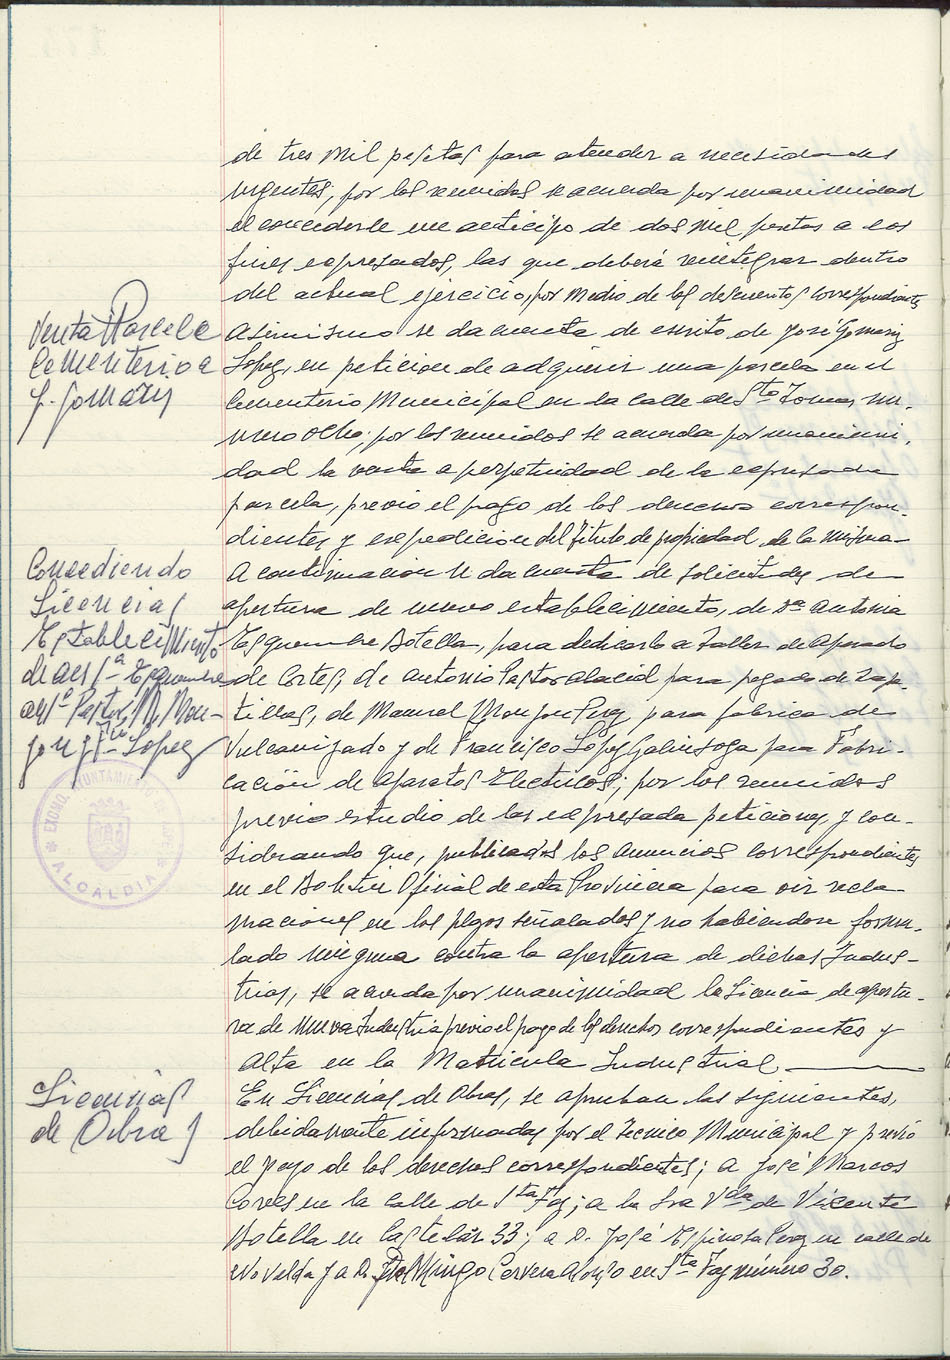 de tres mil pesetas para atender a necesidades
urgentes, por los reunidos se acuerda por unanimidad
el concederle un anticipo de dos mil pesetas a los
fines expresados, las que deberá reintegrar dentro
del actual ejercicio, por medio de los descuentos correspondientes
Venta Parcela
Cementerio a
J. Gomariz
Asimismo se da cuenta de escrito de José Gomariz
Lopez, en peticion de adquirir una parcela en el
Cementerio Municipal en la calle de Sto Tomas, nu-
mero ocho; por los reunidos se acuerda por unanimi-
dad la venta a perpetuidad de la expresada
parcela, previo el pago de los derechos correspon-
dientes y expedicion del titulo de propiedad de la misma-
Concediendo
Licencias
Establecimiento
de Antª Esquembre
Antº Pastor, M. Mon-
jo y Fco Lopez
A continuacion se da cuenta de solicitudes de
apertura de nuevo establecimiento, de Dª Antonia
Esquembre Botella, para dedicarlo a Taller de Aparado
de Cortes, de Antonio Pastor Alacid para pegado de Zapa-
tillas, de Manuel Monjo Perez para fabrica de
Vulcanizado y de Francisco Lopez Galinsoga para Fabri-
cación de Aparatos Electricos; por los reunidos
previo estudio de las expresada peticiones y con-
siderando que, publicados los anuncios correspondientes
en el Boletin Oficial de esta Provincia para oir recla-
maciones en los plazos señalados y no habiendose formu-
lado ninguna contra la apertura de dichas Indus-
trias, se acuerda por unanimidad la Licencia de apertu-
ra de nueva Industria previo el pago de los derechos correspondientes y
Alta en la Matricula Industrial
EXCMO. AYUNTAMIENTO DE ASPE
ALCALDIA
Licencias
de Obras
En Licencias de Obras, se aprueban las siguientes,
debidamente informadas por el Tecnico Municipal y previo
el pago de los derechos correspondientes; a José Marcos
Cores en la calle de Sta Faz; a la Sra Vda de Vicente
Botella en Castelar 33; a D. José Espinosa Perez en calle de
Novelda y a D. Domingo Cervera Alonzo en Sta Faz número 30.